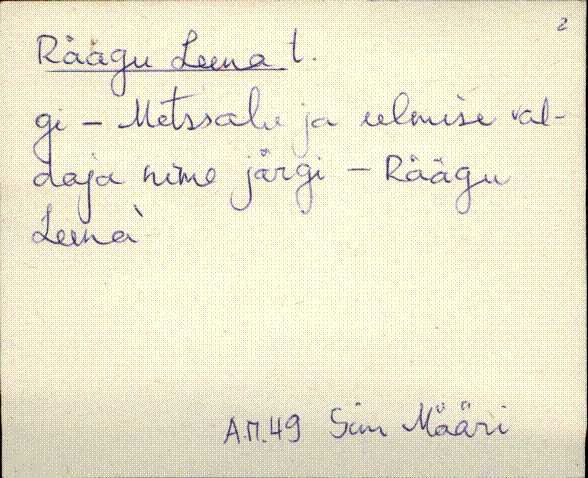 2
Räägu Leena t.
gi - Metssalu ja eelmise val-
daja nime järgi - Räägu
Leena`
A.M.49 Siim Määri